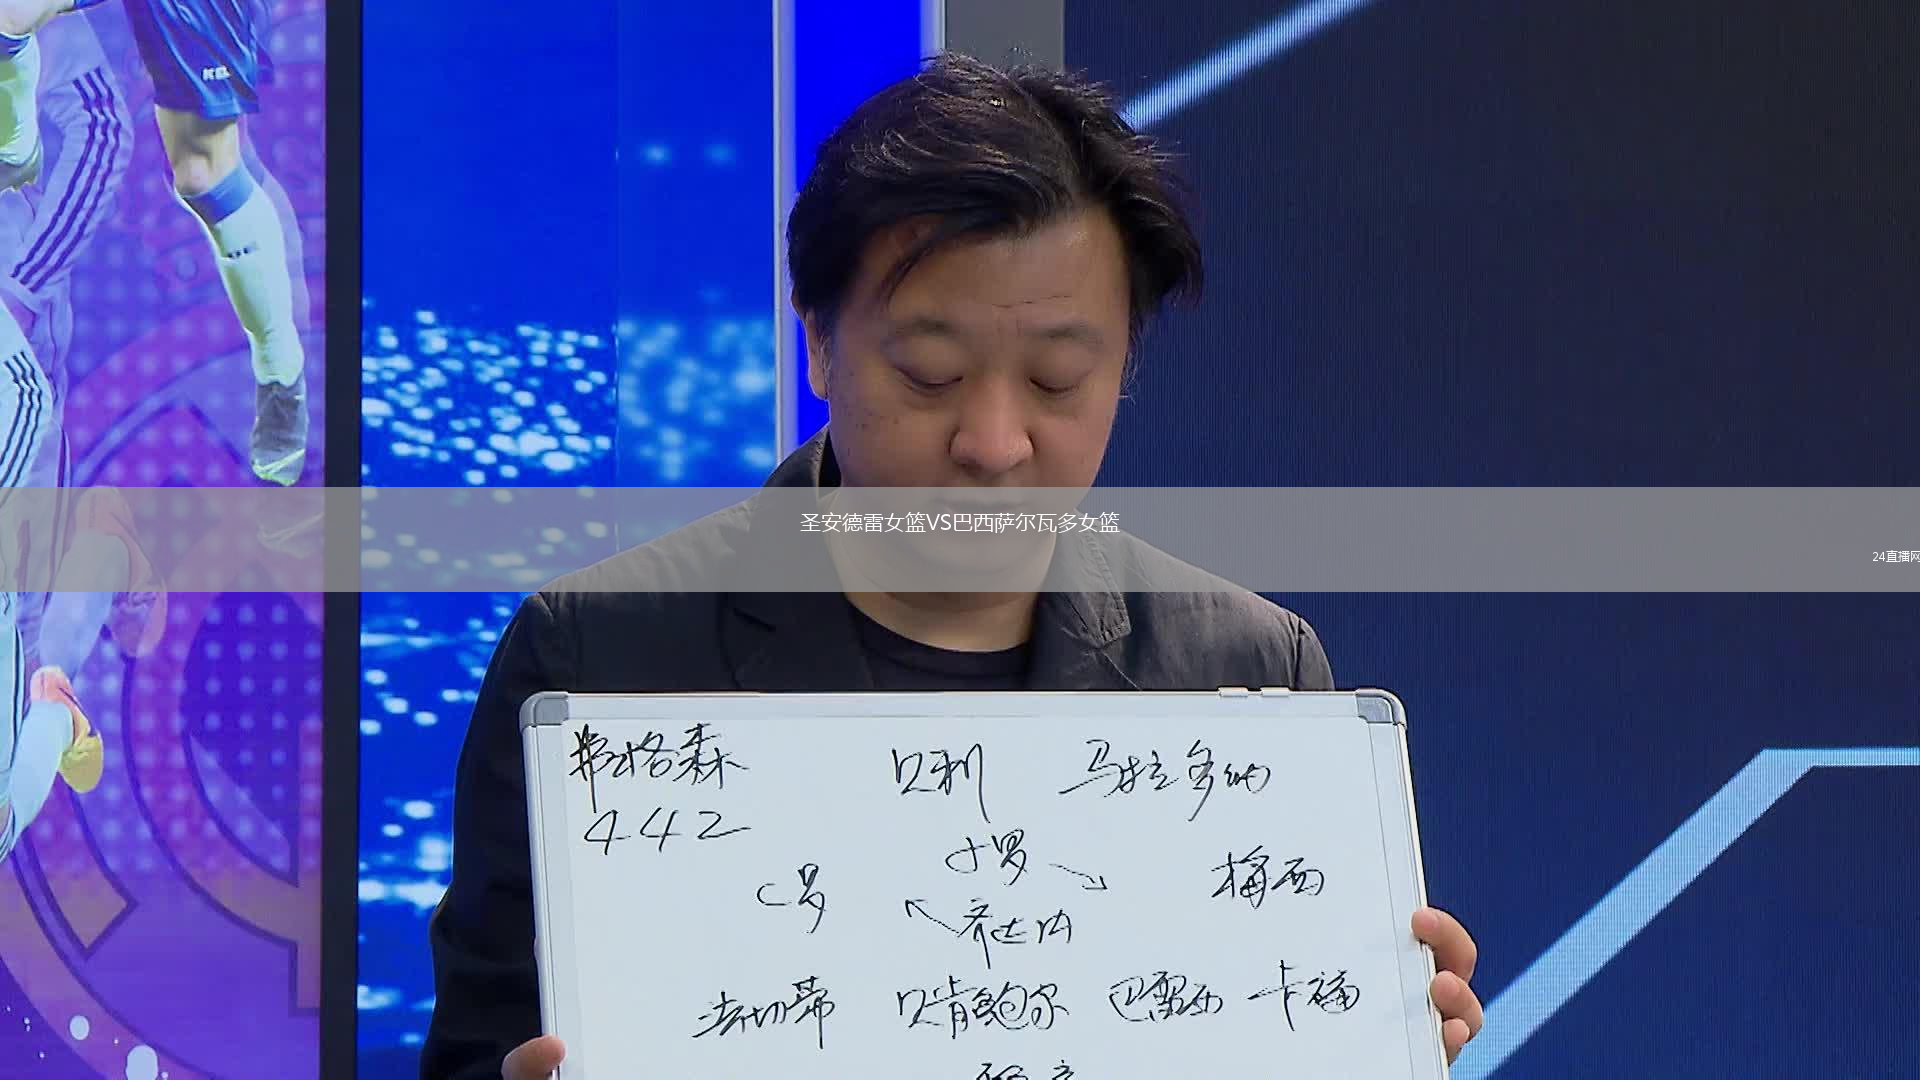 圣安德雷女篮VS巴西萨尔瓦多女篮
24直播网
弗格森 贝利 马拉多纳
442
C罗 小罗 梅西
齐达内
法切蒂 贝肯鲍尔 巴雷西 卡福